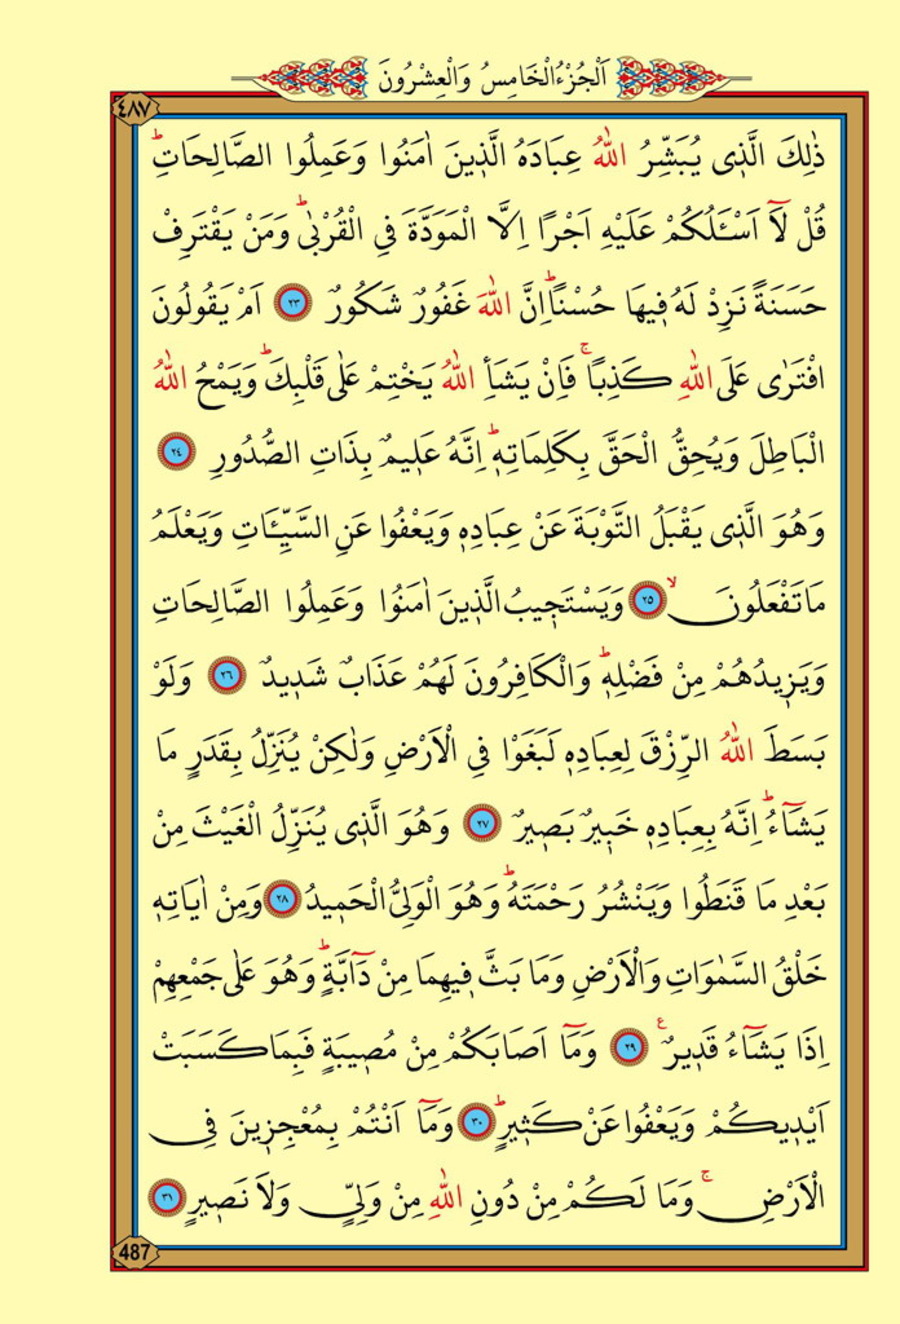 اَلْجُزْءُ الْخَامِسُ وَالْعِشْرُونَ
٤٨٧
ذٰلِكَ الَّذ۪ى يُبَشِّرُ اللّٰهُ عِبَادَهُ الَّذ۪ينَ اٰمَنُوا وَعَمِلُوا الصَّالِحَاتِۜ
قُلْ لَٓا اَسْـَٔلُكُمْ عَلَيْهِ اَجْرًا اِلَّا الْمَوَدَّةَ فِى الْقُرْبٰىۜ وَمَنْ يَقْتَرِفْ
حَسَنَةً نَزِدْ لَهُ ف۪يهَا حُسْنًاۜ اِنَّ اللّٰهَ غَفُورٌ شَكُورٌ ﴿٢٣﴾ اَمْ يَقُولُونَ
افْتَرٰى عَلَى اللّٰهِ كَذِبًاۚ فَاِنْ يَشَأِ اللّٰهُ يَخْتِمْ عَلٰى قَلْبِكَۜ وَيَمْحُ اللّٰهُ
الْبَاطِلَ وَيُحِقُّ الْحَقَّ بِكَلِمَاتِه۪ۜ اِنَّهُ عَل۪يمٌ بِذَاتِ الصُّدُورِ ﴿٢٤﴾
وَهُوَ الَّذ۪ى يَقْبَلُ التَّوْبَةَ عَنْ عِبَادِه۪ وَيَعْفُوا عَنِ السَّيِّـَٔاتِ وَيَعْلَمُ
مَا تَفْعَلُونَۙ ﴿٢٥﴾ وَيَسْتَج۪يبُ الَّذ۪ينَ اٰمَنُوا وَعَمِلُوا الصَّالِحَاتِ
وَيَز۪يدُهُمْ مِنْ فَضْلِه۪ۜ وَالْكَافِرُونَ لَهُمْ عَذَابٌ شَد۪يدٌ ﴿٢٦﴾ وَلَوْ
بَسَطَ اللّٰهُ الرِّزْقَ لِعِبَادِه۪ لَبَغَوْا فِى الْاَرْضِ وَلٰكِنْ يُنَزِّلُ بِقَدَرٍ مَا
يَشَٓاءُۜ اِنَّهُ بِعِبَادِه۪ خَب۪يرٌ بَص۪يرٌ ﴿٢٧﴾ وَهُوَ الَّذ۪ى يُنَزِّلُ الْغَيْثَ مِنْ
بَعْدِ مَا قَنَطُوا وَيَنْشُرُ رَحْمَتَهُۜ وَهُوَ الْوَلِىُّ الْحَم۪يدُ ﴿٢٨﴾ وَمِنْ اٰيَاتِه۪
خَلْقُ السَّمٰوَاتِ وَالْاَرْضِ وَمَا بَثَّ ف۪يهِمَا مِنْ دَٓابَّةٍۜ وَهُوَ عَلٰى جَمْعِهِمْ
اِذَا يَشَٓاءُ قَد۪يرٌ۟ ﴿٢٩﴾ وَمَٓا اَصَابَكُمْ مِنْ مُص۪يبَةٍ فَبِمَا كَسَبَتْ
اَيْد۪يكُمْ وَيَعْفُوا عَنْ كَث۪يرٍۜ ﴿٣٠﴾ وَمَٓا اَنْتُمْ بِمُعْجِز۪ينَ فِى
الْاَرْضِۚ وَمَا لَكُمْ مِنْ دُونِ اللّٰهِ مِنْ وَلِىٍّ وَلَا نَص۪يرٍ ﴿٣١﴾
487